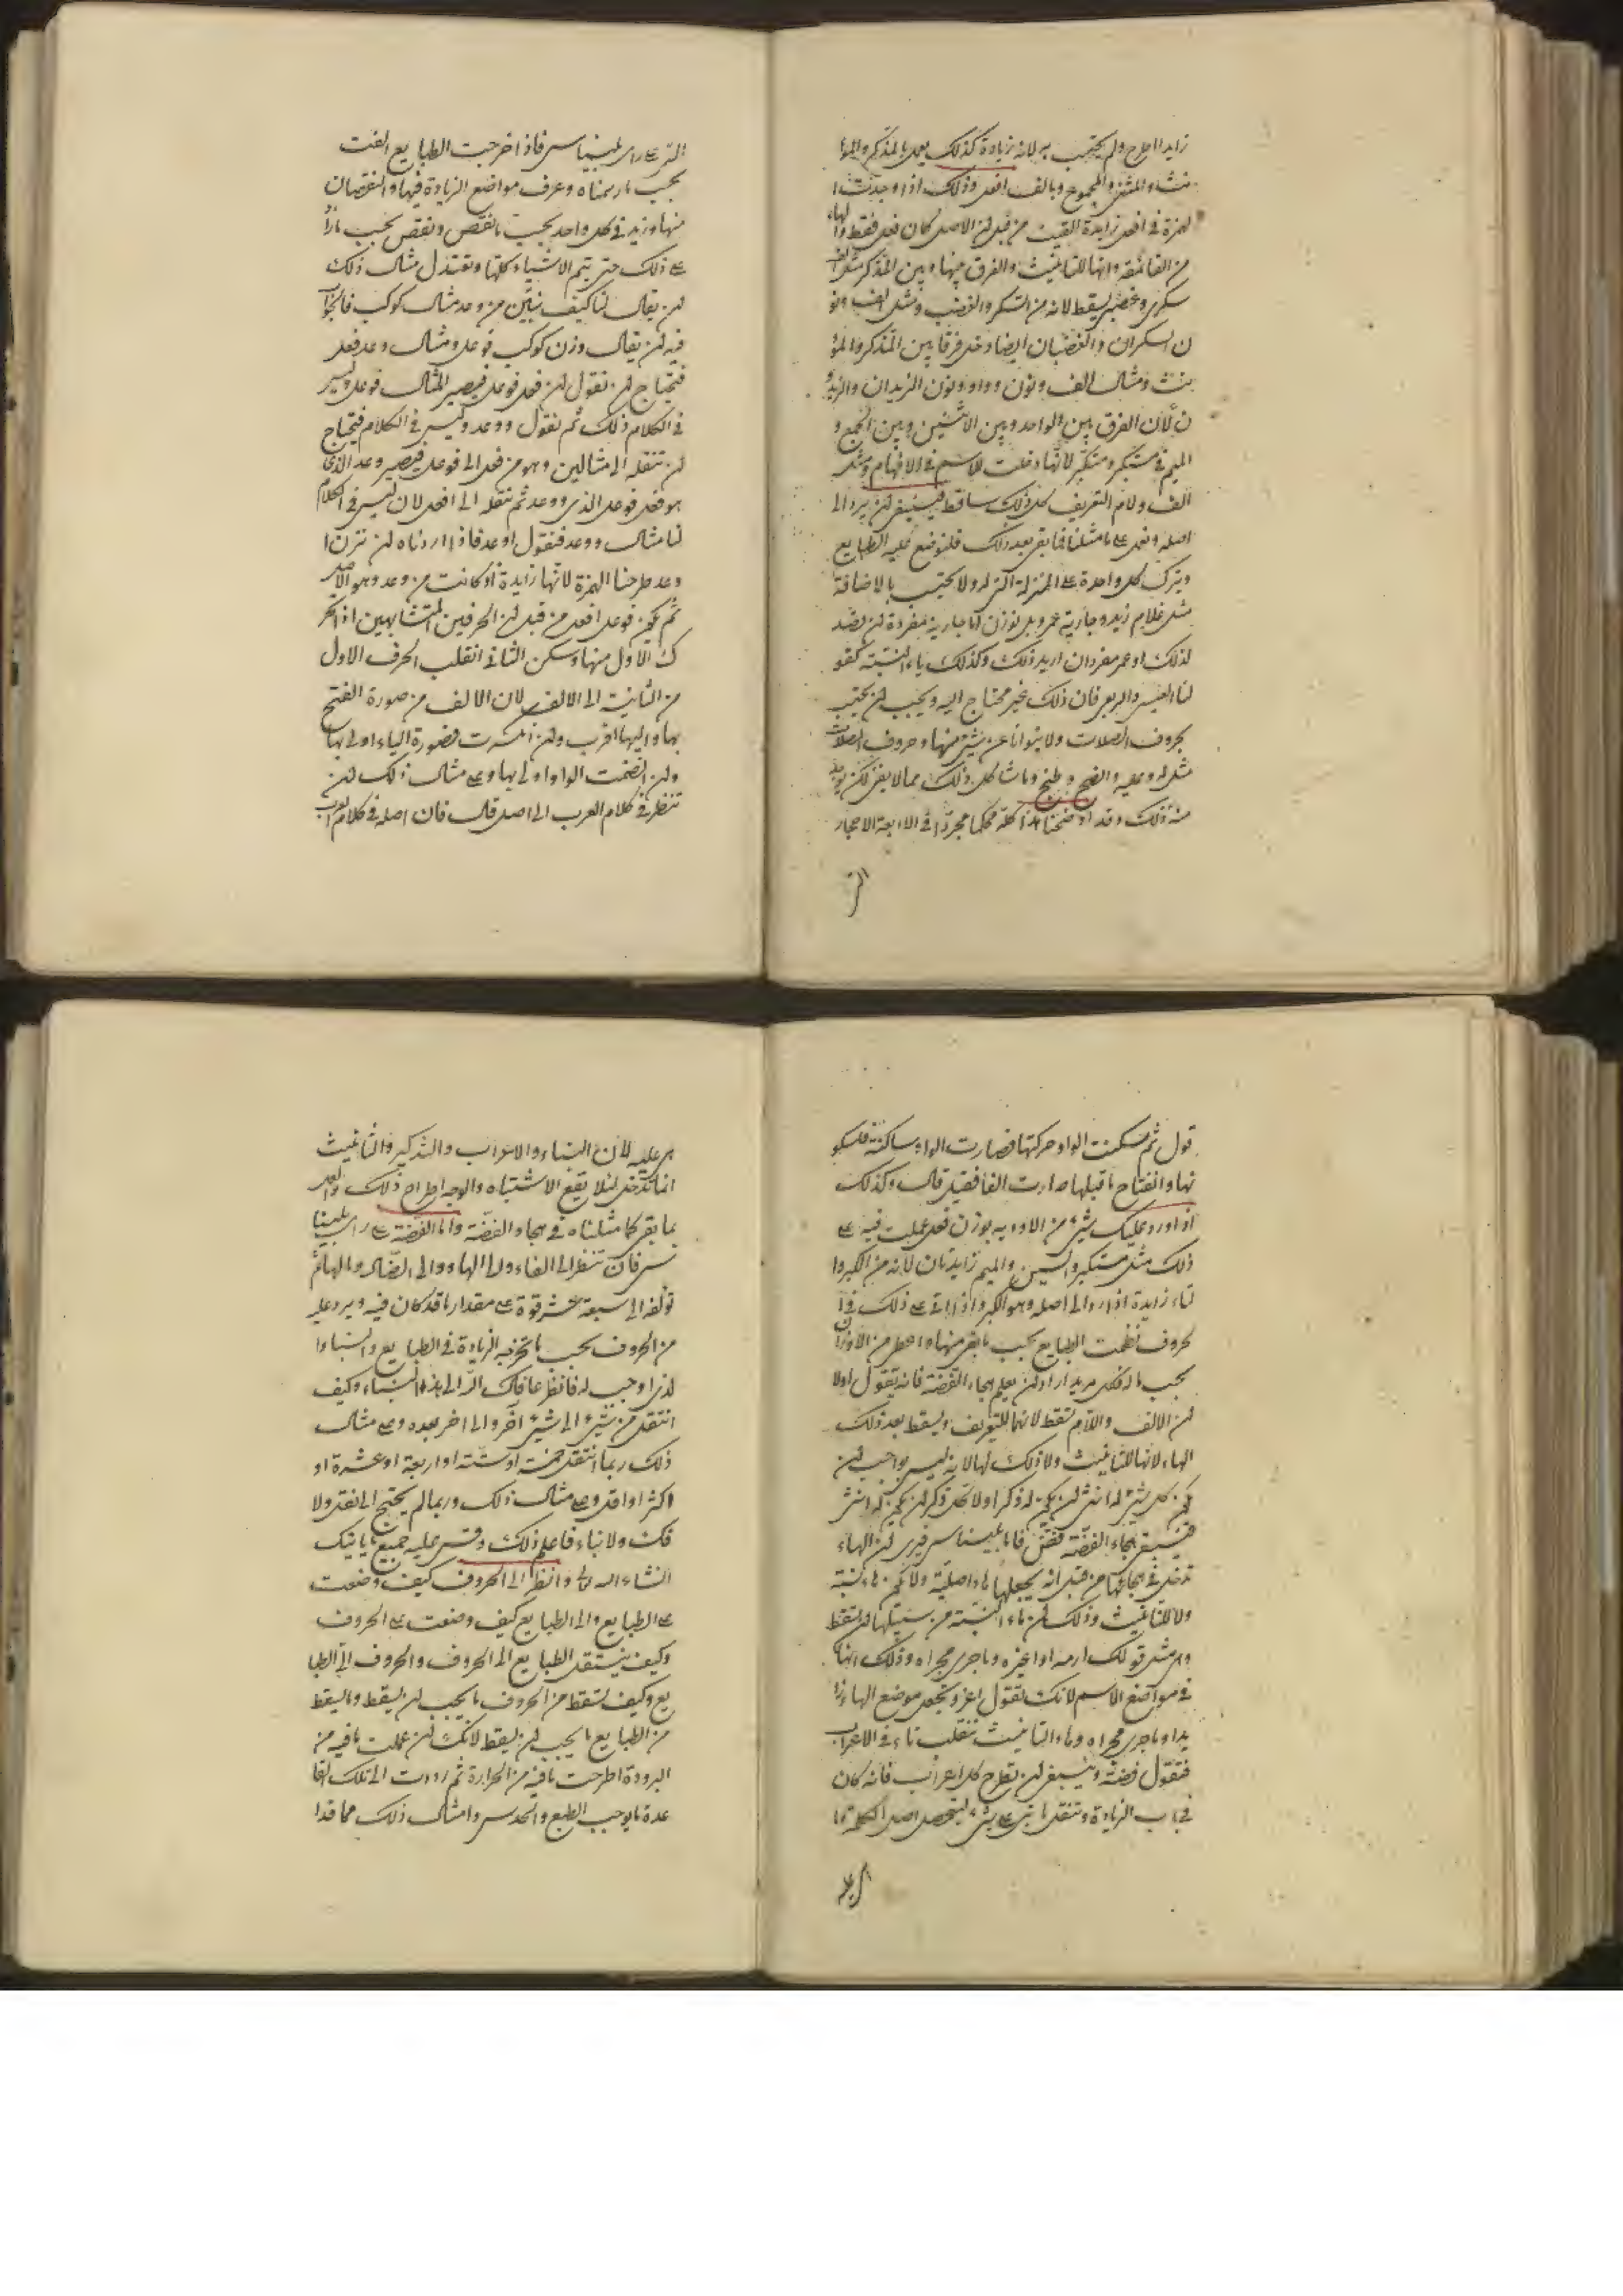 زايدا اطرح ولم يحتسب به لانه زيادة كذلك يعمل بالمذكر والمؤ
نث والمثنى والمجموع وبالف افعل وذلك اذا وجدت ا
لهمزة في افعل زايدة القيت من قبل ان الاصل كان فعل فقط والهاء
من القائمة وانها للتانيث والفرق بينها وبين المذكر مثل الف
سكرى وغضبى يسقط لانه من السكر والغضب ومثل الف ونو
ن السكران والغضبان ايضا دخل فرقا بين المذكر والمؤ
نث ومثال الف ونون وواو ونون الزيدان والزيدو
ن لان الفرق بين الواحد وبين الاثنين وبين الجمع و
الميم في مستكبر ومتكبر لانها دخلت للاسم في الافهام ومثل
الف ولام التعريف كل ذلك ساقط فينبغي ان يرد الى
اصله ونعمل على ما مثلنا فما بقي بعد ذلك فلتوضع عليه الطبايع
ويترك كل واحدة على المنزلة التي له ولا يحتسب بالاضافة
مثل غلام زيد وجارية عمرو بل توزن اما جارية مفردة ان قصد
لذلك او عمر مفردا ان اريد ذلك وكذلك ياء النسبة كقو
لنا العيسى والربعى فان ذلك غير محتاج اليه ويجب ان يحتسب
بحروف الصلات ولا يتوانا عن شئ منها وحروف الصلات
مثل له وعليه وما شاكل ذلك مما لا يغنى لكن يوجد
منه ذلك وقد اوضحنا هذا كله محكما مجردا في الاربعة الاحجار
التى
التى على راى بليناس فاذا خرجت الطبايع الفت
بحسب ما رسمناه وعرف مواضع الزيادة فيها والنقصان
منها وزيد في كل واحد بحسب ما نقص ونقص بحسب ما زاد
على ذلك حتى تتم الاشياء كلها وتعتدل مثال ذلك
ان يقال لنا كيف نبين من وعد مثال كوكب فالجوا
فيه ان يقال وزن كوكب فوعل ومثال وعد فعل
فنحتاج ان نقول ان فعل فوعل فيصير المثال فوعل وليس
في الكلام ذلك ثم نقول ووعد وليس في الكلام فنحتاج
ان تنقله الى مثالين وهو من فعل الى فوعل فيصير وعد الذى
هو فعل فوعل الذى ووعد ثم تنقله الى افعل لان ليس في الكلام
لنا مثال ووعد فنقول اوعد فاذا اردناه ان نزن ا
وعد طرحنا الهمزة لانها زايدة اذ كانت من وعد وهو الاصل
ثم يكون فوعل افعل من قبل ان الحرفين المتشابهين اذا تحر
ك الاول منها وسكن الثانى انقلب الحرف الاول
من الثانية الى الالف لان الالف من صورة الفتح
بها واليها اقرب وان انكسرت فصورة الياء اولى بها
وان انضمت الواو اولى بها وعلى مثال ذلك ان
تنظر في كلام العرب الى اصل قال فان اصله في كلام العرب
قول ثم سكنت الواو حركتها فصارت الواو ساكنة فلسكو
نها وانفتاح ما قبلها صارت الفا فقيل قال وكذلك
اذا ورد عليك شئ من الادوية بوزن فعل عملت فيه على
ذلك مثل مستكبر والسين والميم زايدتان لانه من الكبر وا
لتاء زايدة اذا رد الى اصله وهو الكبر واذا اتى على ذلك في ا
لحروف نظمت الطبايع بحسب ما بقى منها واعطى من الاوزان
بحسب ما له فكل مريد اراد ان يعلم هجاء الفضة فانه يقول اولا
ان الالف واللام تسقط لانهما للتعريف ويسقط بعد ذلك
الهاء لانها للتانيث ولا ذلك لها لانه ليس بواجب ان
يكون كل شئ له انثى ان يكون له ذكر اولا كل ذكر ان يكون له انثى
فيبقى هجاء الفضة فضض فاما بليناس فيرى ان الهاء
تدخل في هجائها من قبل انه يجعلها هاء اصلية ولا يكون هاء نسبة
ولا للتانيث وذلك ان هاء النسبة من سبيلها ان تسقط
وهى مثل قولك ارمه او اغزه وما جرى مجراه وذلك انها
في مواضع الاسم لانك تقول اغز وتجعل موضع الهاء زا
يدا وما جرى مجراه وهاء التانيث تنقلب تاء في الاعراب
فتقول فضة وينبغى ان يطرح كل اعراب فانه كان
في باب الزيادة وتنقل ما بنى على شئ ليتحصل اصل الكلمة ما
هى عليه
هى عليه لان البناء والاعراب والتذكير والتانيث
انما تدخل لئلا يقع الاشتباه والوجه اطراح ذلك والعمل
بما بقى كما مثلناه في هجاء الفضة واما الفضة على راى بلينا
س فان تنظر الى الفاء والى الهاء والى الضاد والهاء ثم
تؤلف الى سبعة عشر قوة على مقدار ما قد كان فيه ويرد عليه
من الحروف بحسب ما تخرجه الزيادة في الطبايع والبناء وا
لذى اوجب له فانظر عافاك الله الى هذا البناء وكيف
انتقل من شئ الى شئ اخر والى اخر بعده وعلى مثال
ذلك ربما انتقل خمسة او ستة او اربعة او عشرة او
اكثر او اقل وعلى مثال ذلك وربما لم يحتج الى نقل ولا
فك ولا بناء فاعلم ذلك وقس عليه جميع ما ياتيك
انشاء الله تعالى وانظر الى الحروف كيف وضعت
على الطبايع والى الطبايع كيف وضعت على الحروف
وكيف ينتقل الطبايع الى الحروف والحروف الى الطبا
يع وكيف تسقط من الحروف ما يجب ان يسقط وما يسقط
من الطبايع ما يجب ان يسقط لانك ان عملت ما فيه من
البرودة اطرحت ما فيه من الحرارة ثم رددت الى تلك القا
عدة ما يوجب الطبع والحدس وامثال ذلك مما قدا